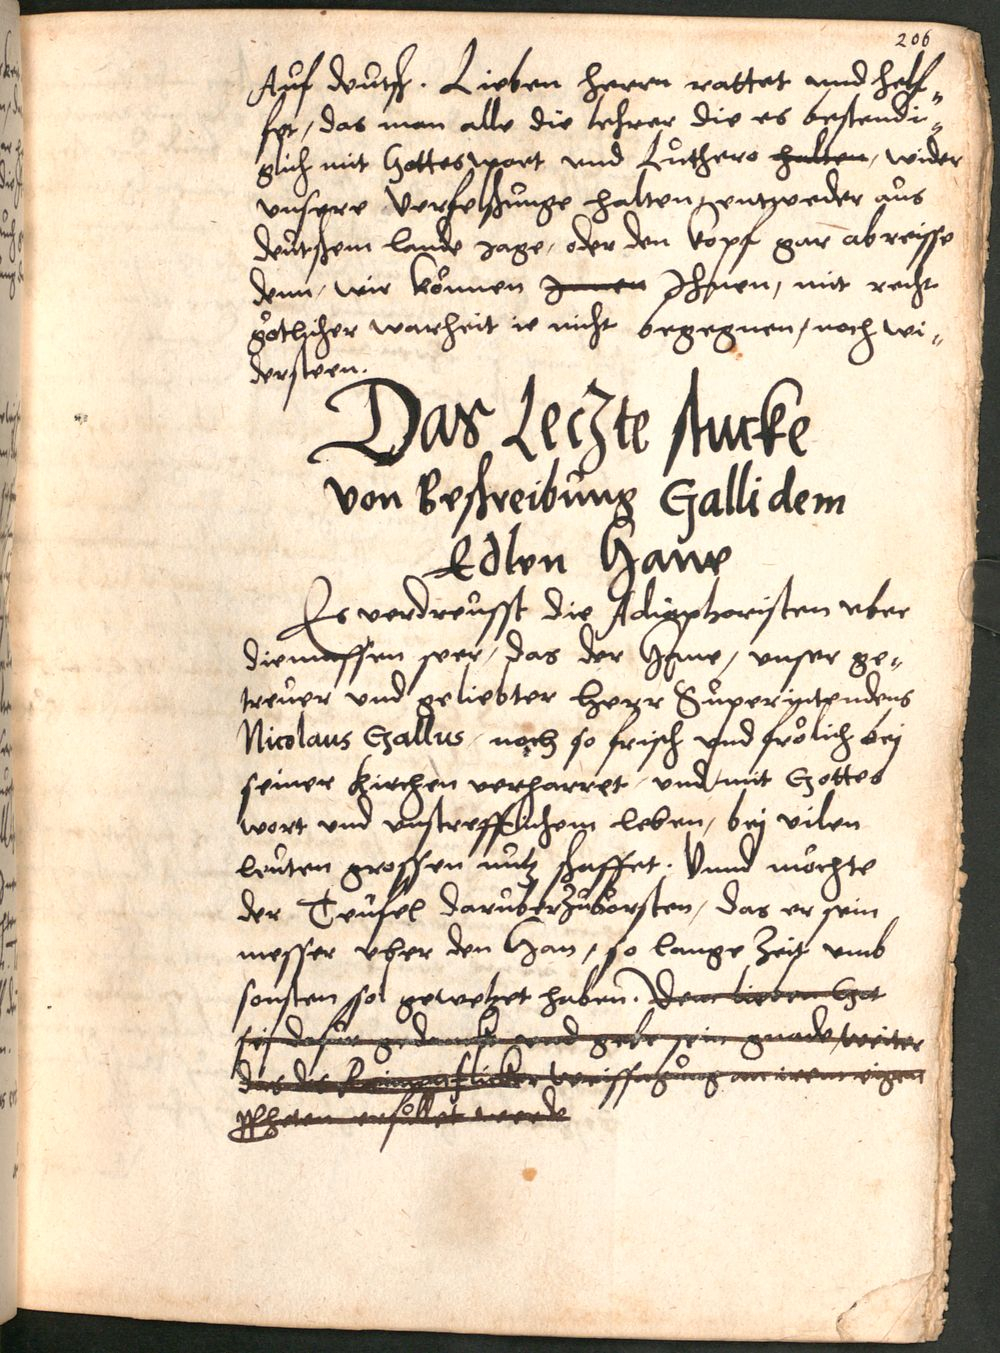 206
Auf deutsch. Lieben herrn rattet und helf=
fet, das man alle die lehrer die es bestendi=
glich mit Gottes wort und Luthero halten, wider
unsere Verfelschunge halten, entweder aus
deutschem lande jage, oder den kopf gar abreisse
denn, wir können Innen Ihnen, mit recht
götlicher warheit ie nicht begegnen, noch wi=
dersteen.
Das Leczte stucke
von Beschreibung Galli dem
Edlen Hane
Es verdreusst die Adiaphoristen uber
die massen seer, das der Hane, unser ge=
treuer und geliebter herr Superintendens
Nicolaus Gallus, noch so frisch und frölich bej
seiner kirchen verharret, und mit Gottes
wort und unstrefflichem leben, bej vilen
leuten grossen nutz schaffet. Unnd möchte
der Teufel daruber zubörsten, das er sein
messer uber den Han, so lange Zeit umb
sonsten sol gewetzet haben. Dem lieben Got
sej dafur gedanckt und gebe sein gnade, weiter
das des Reimenflicker weissagung an irem eigen
erfüllet werde